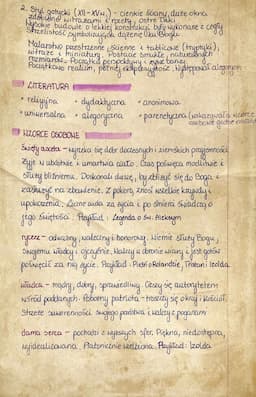 2. Styl gotycki (XII-XVw.) - cienkie ściany, duże okna
zdobione witrażami i rozety, ostre łuki
Wysokie budowle o lekkiej konstrukcji, były wykonane z cegły
Strzelistość symbolizujących dążenie ku Bogu
Malarstwo przestrzenne, ścienne i tablicowe (tryptyki),
witraże i miniatury. Postacie smukłe, naturalnych
rozmiarów. Początki perspektywy i
Początkowo realizm, później
LITERATURA
• religijna • dydaktyczna • anonimowa
• uniwersalna • alegoryczna • parenetyczna (wskazywała wzorce
osobowe godne
WZORCE OSOBOWE
święty asceta - wyrzeka się dóbr doczesnych i ziemskich przyjemności
Żyje w ubóstwie i umartwia ciało. Czas poświęca modlitwie i
służby bliźniemu. Doskonali duszę, by zbliżyć się do Boga i
zasłużyć na zbawienie. Z pokorą znosi wszelkie krzywdy i
upokorzenia. Liczne cuda za życia i po śmierci świadczą o
jego świętości. Przykład: Legenda o św. Aleksym
rycerz - odważny, waleczny i honorowy. Wiernie służy Bogu,
swojemu władcy i ojczyźnie. Walczy w obronie wiary i jest gotów
poświęcić za nią życie. Przykład: Pieśń o Rolandzie, Tristan i Izolda
władca - mądry, dobry, sprawiedliwy. Cieszy się autorytetem
wśród poddanych. Pobożny patriota - troszczy się o kraj i kościół.
Strzeże suwerenności swojego państwa i walczy z poganami
dama serca - pochodzi z wyższych sfer. Piękna, niedostępna,
wyidealizowana. Platonicznie wielbiona. Przykład: Izolda